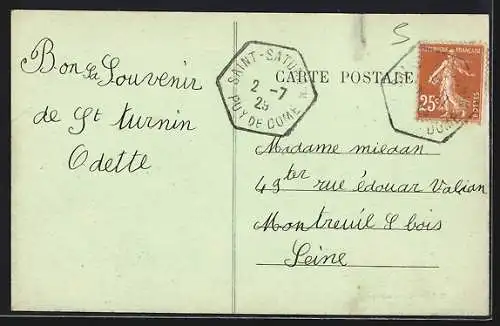 Bon Souvenir
de St turnin
Odette
SAINT-SATUR
2 -7
25
PUY DE DOME
CARTE POSTALE
S
RÉPUBLIQUE FRANÇAISE
25c
POSTES
DOME
Madame miedan
49 ter rue édouar Valian
Montreuil S bois
Seine